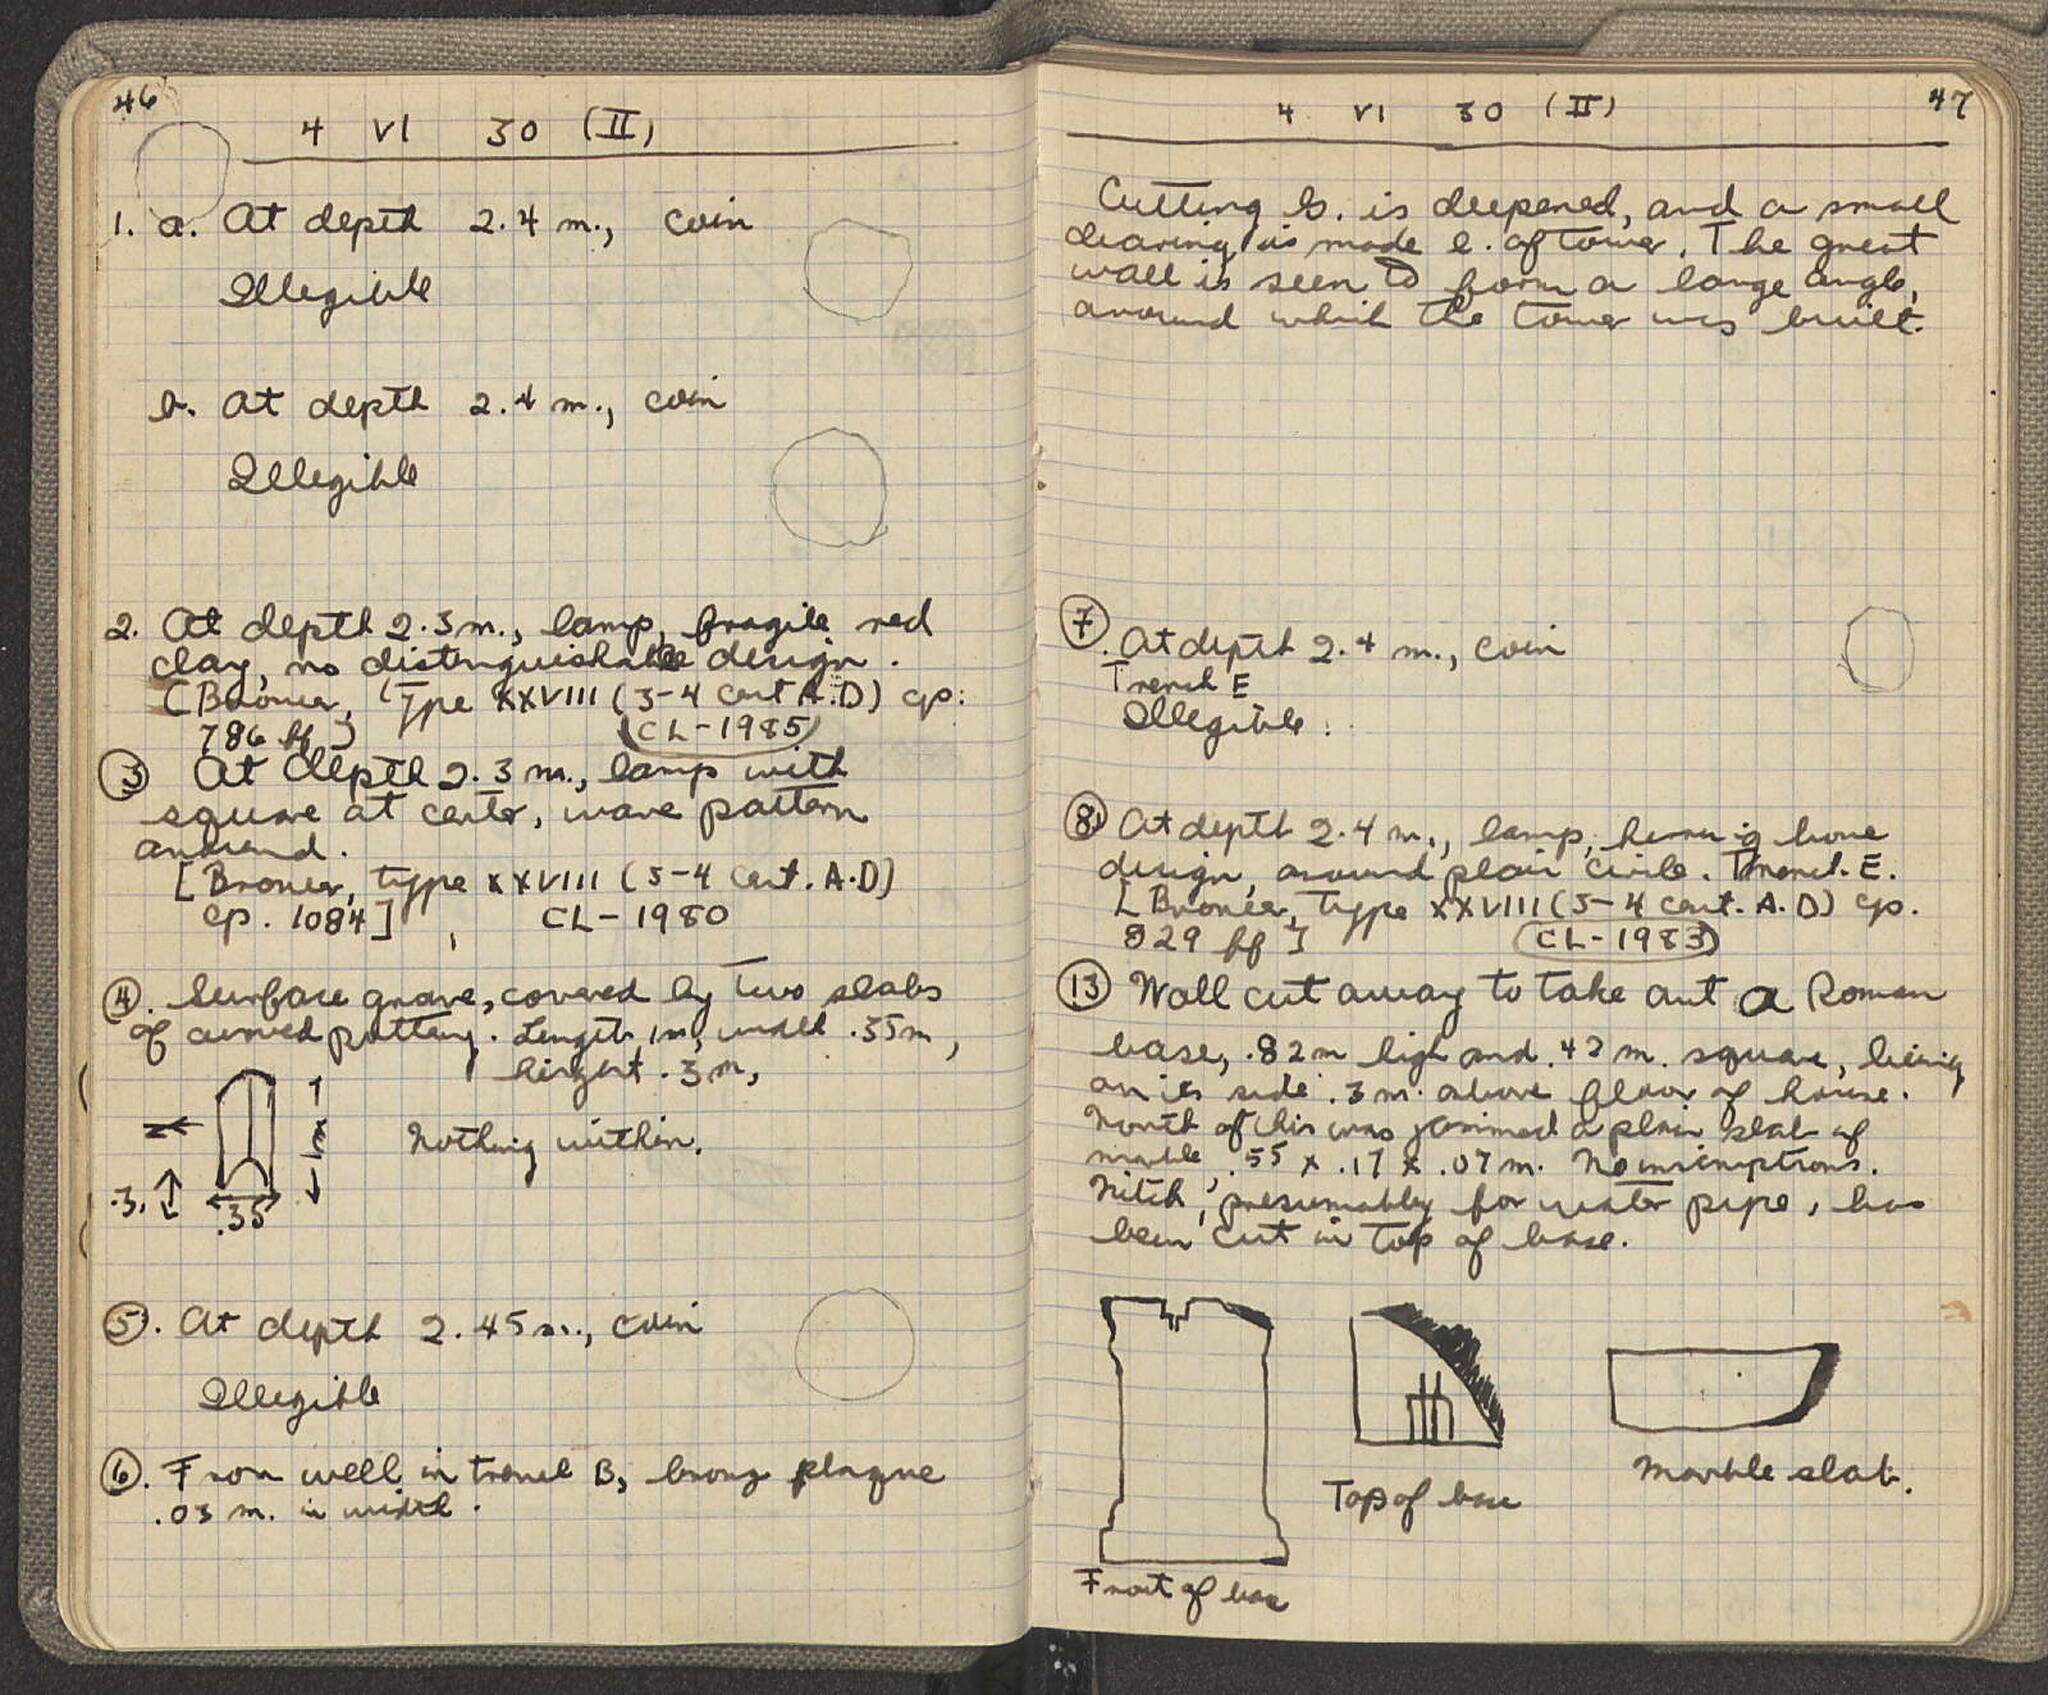 46
4 VI 30 (II)
1. a. At depth 2.4 m., coin
Illegible
b. At depth 2.4 m., coin
Illegible
2. At depth 2.3 m., lamp, fragile red
clay, no distinguishable design.
[Broneer, Type XXVIII (3-4 cent A.D) cp.
786 ff]
CL-1985
3 At depth 2.3 m., lamp with
square at center, wave pattern
around.
[Broneer, type XXVIII (3-4 cent. A.D)
cp. 1084], CL-1980
4. Surface grave, covered by two slabs
of curved pottery. Length 1m, width .35m,
height .3m,
1m
Nothing within.
.3.
.35
5. At depth 2.45 m., coin
Illegible
6. From well in trench B, bronz plaque
.03 m. in width.
47
4 VI 30 (II)
Cutting B. is deepened, and a small
clearing is made e. of tower. The great
wall is seen to form a large angle,
around which the tower was built.
7. At depth 2.4 m., coin
Trench E
Illegible.
8. At depth 2.4 m., lamp, herring bone
design, around plain circle. Trench. E.
[Broneer, type XXVIII (3-4 cent. A.D) cp.
829 ff]
CL-1983
13 Wall cut away to take out a Roman
base, .82m high and .42 m. square, lieing
on its side .3 m. above floor of house.
North of this was jammed a plain slab of
marble, .55 x .17 x .07 m. No inscriptions.
Nitch, presumably for water pipe, has
been cut in top of base.
Top of base
Marble slab.
Front of base